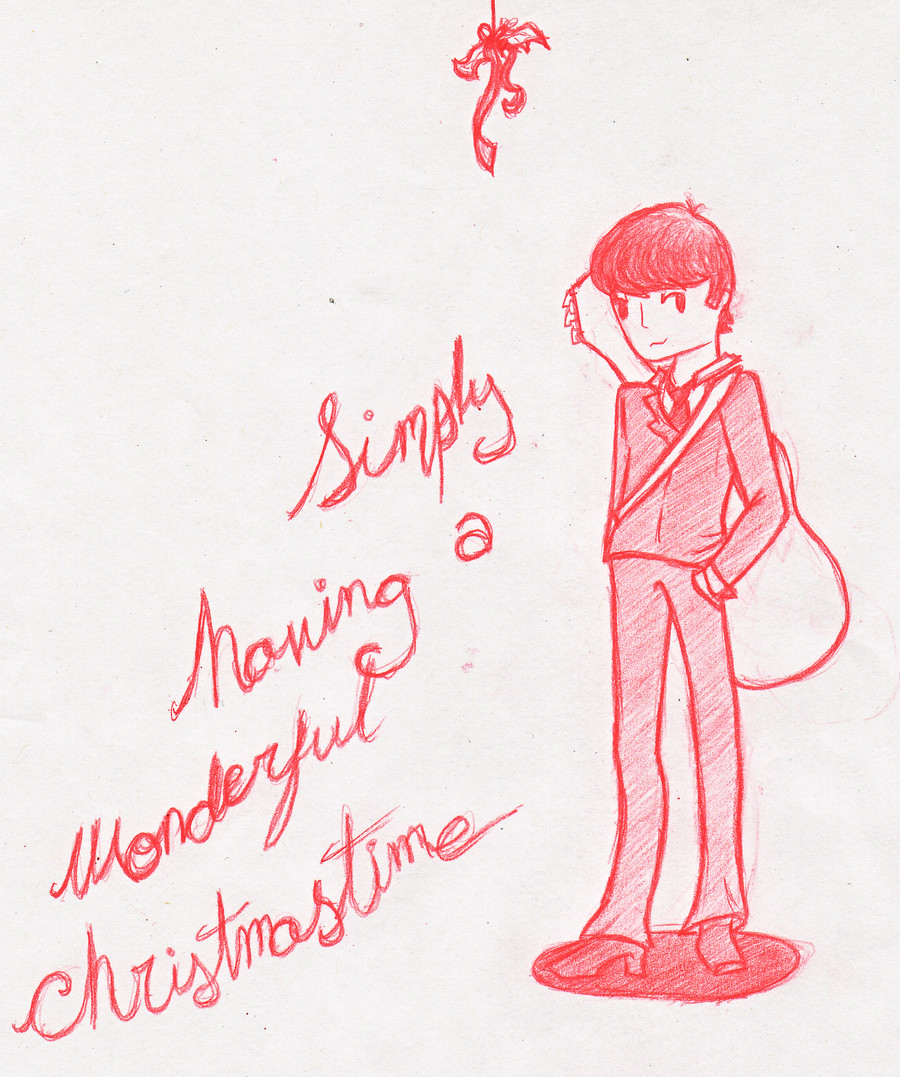 Simply
a
Having
Wonderful
Christmastime